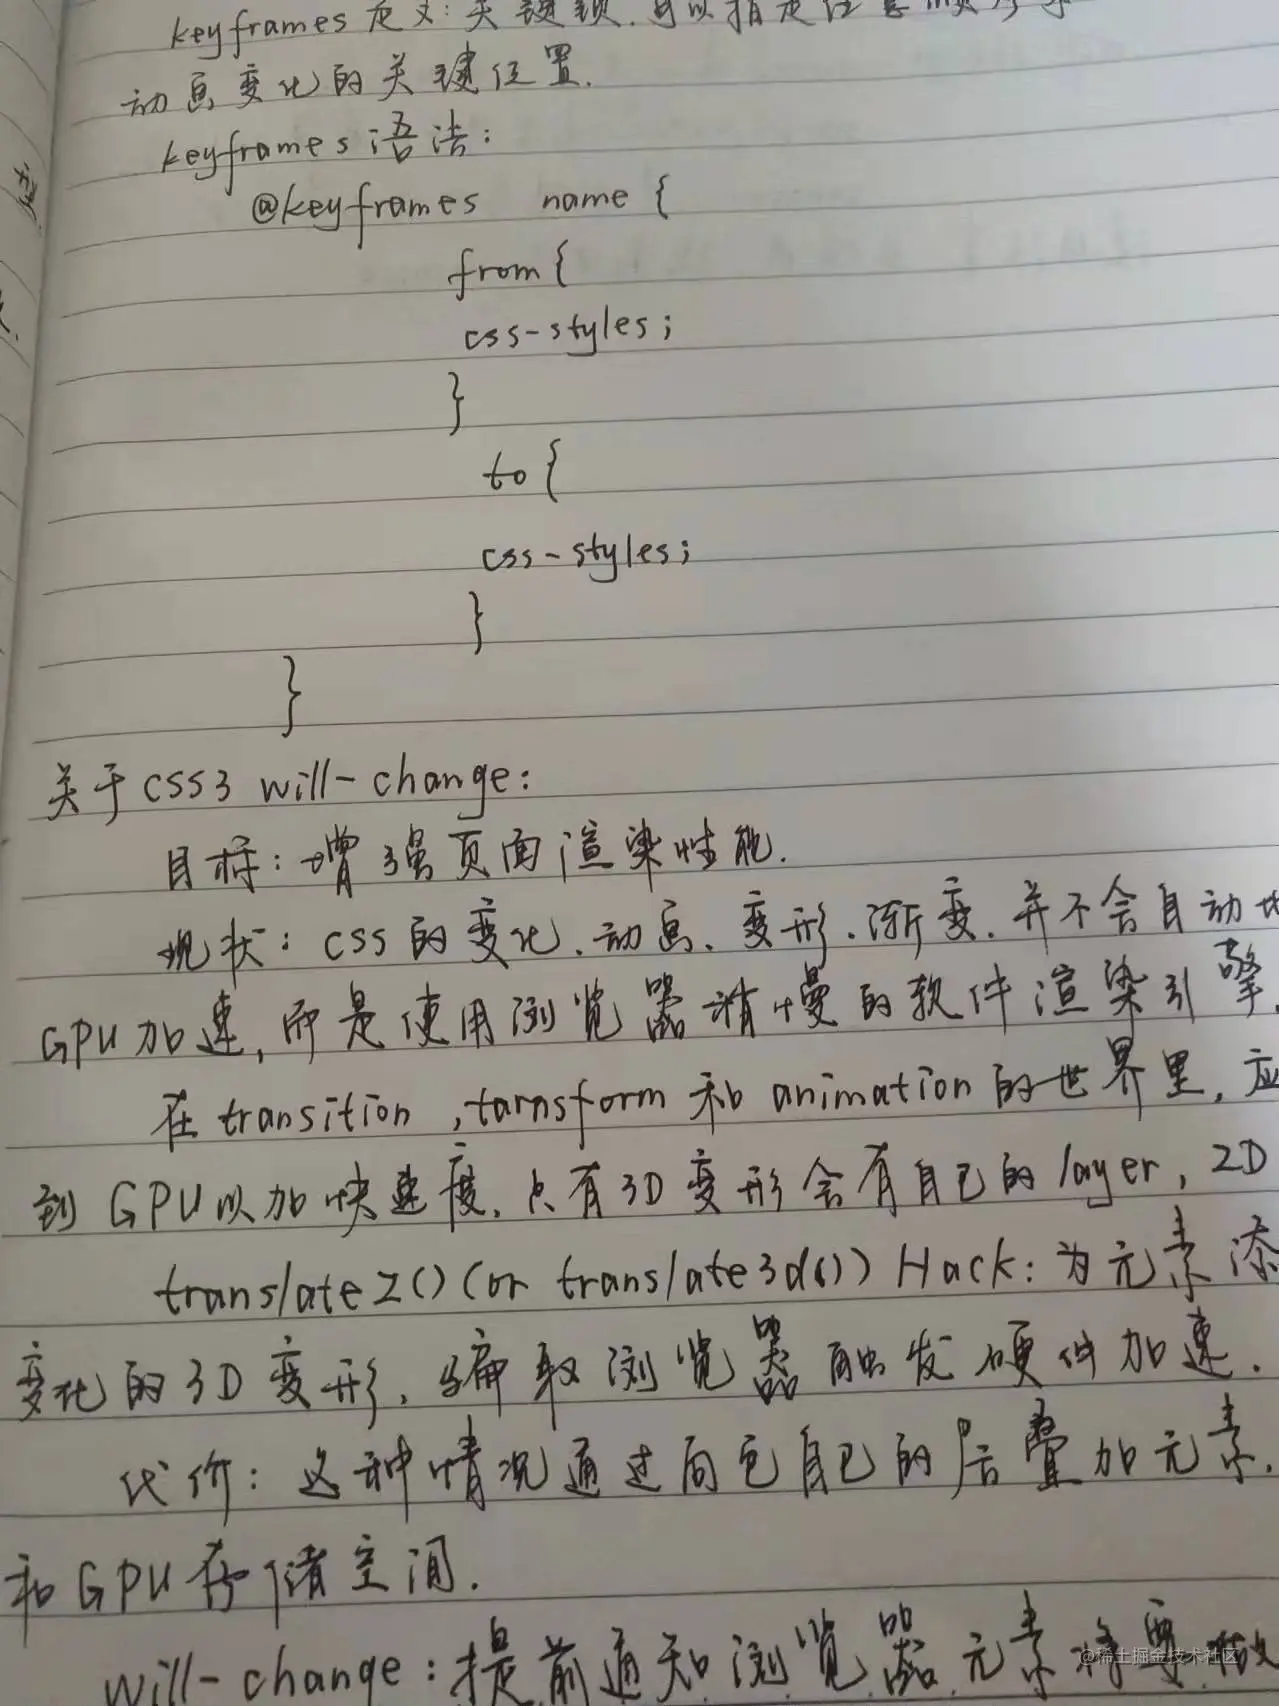 keyframes定义:关键帧.可以指定任意
动画变化的关键位置.
keyframes语法:
程
@keyframes name {
from {
css-styles;
}
to {
css-styles;
}
}
关于css3 will-change:
目标:增强页面渲染性能.
现状:css的变化、动画、变形、渐变.并不会自动地
GPU加速,而是使用浏览器稍慢的软件渲染引擎.
在transition ,tarnsform和animation的世界里,应
到GPU以加快速度.只有3D变形会有自己的layer,2D
translateZ()(or translate3d()) Hack:为元素添
变化的3D变形,骗取浏览器触发硬件加速.
代价:这种情况通过向它自己的层叠加元素.
和GPU存储空间.
will-change:提前通知浏览器元素将要做
@稀土掘金技术社区